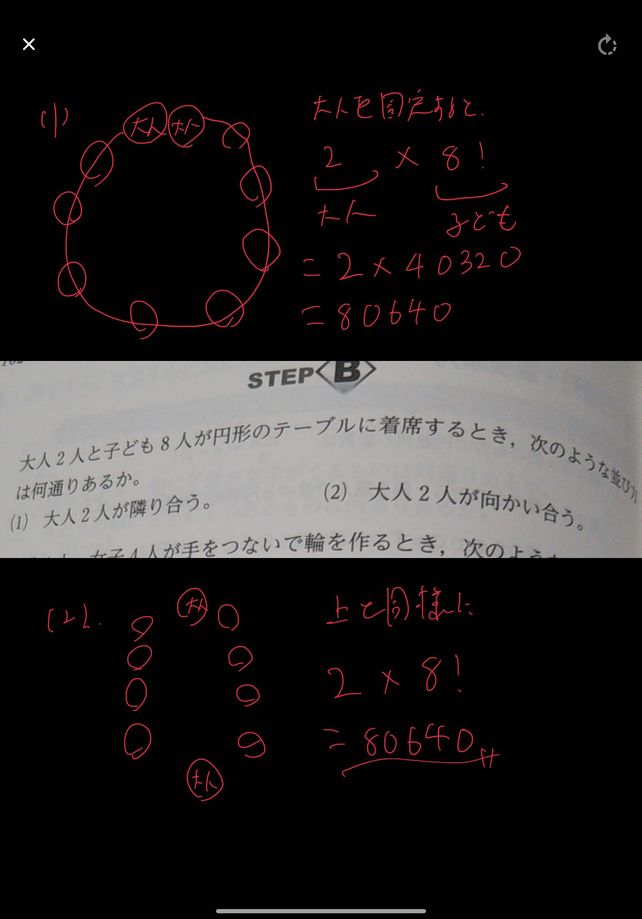 (1)
大人 大人
大人を固定すると.
2 × 8!
大人 子ども
= 2 × 40320
= 80640
STEP B
大人2人と子ども8人が円形のテーブルに着席するとき,次のような並び方
は何通りあるか。
(1) 大人2人が隣り合う。 (2) 大人2人が向かい合う。
女子4人が手をつないで輪を作るとき,次のような
(2).
大人
大人
上と同様に
2 × 8!
= 80640